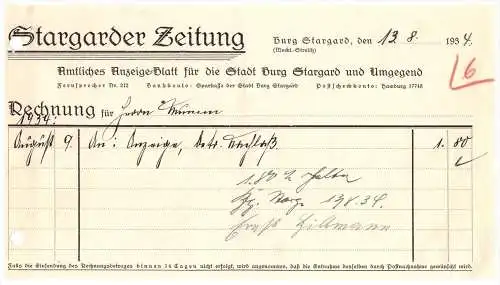 Stargarder Zeitung
Burg Stargard, den 13. 8. 1934
(Meckl.-Strelitz)
Amtliches Anzeige-Blatt für die Stadt Burg Stargard und Umgegend
Fernsprecher Nr. 212 Bankkonto: Sparkasse der Stadt Burg Stargard Postscheckkonto: Hamburg 17718
6
Rechnung für Herrn
1934:
August 9. An: Anzeige, betr. Nachlaß 1. 80
1.80 erhalten
13 8 34
Ernst
Falls die Einsendung des Rechnungsbetrages binnen 14 Tagen nicht erfolgt, wird angenommen, daß die Entnahme desselben durch Postnachnahme gewünscht wird.